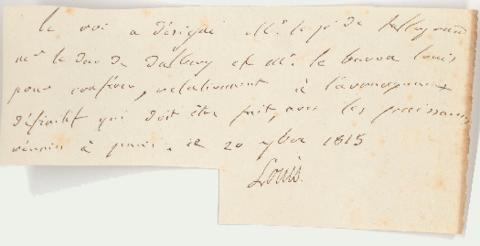 le roi a désigné Mr. le pce de talleyrand
Mr. le duc de Dalberg et Mr. le baron louis
pour conférer, relativement à l'arrangement
définitif qui doit être fait, avec les puissances
réunies à paris. ce 20 7bre 1815
Louis.